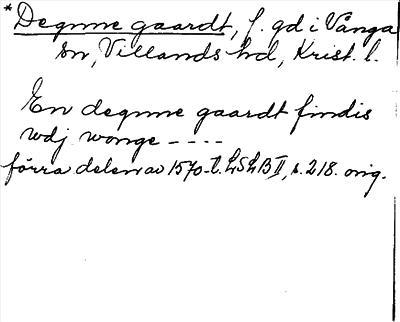 * Degnne gaardt, f. gd i Vånga
sn, Villands hd, Krist. l.
En degnne gaardt findis
wdj wonge ----
förra delen av 1570-t. LSLB II, s. 218. orig.